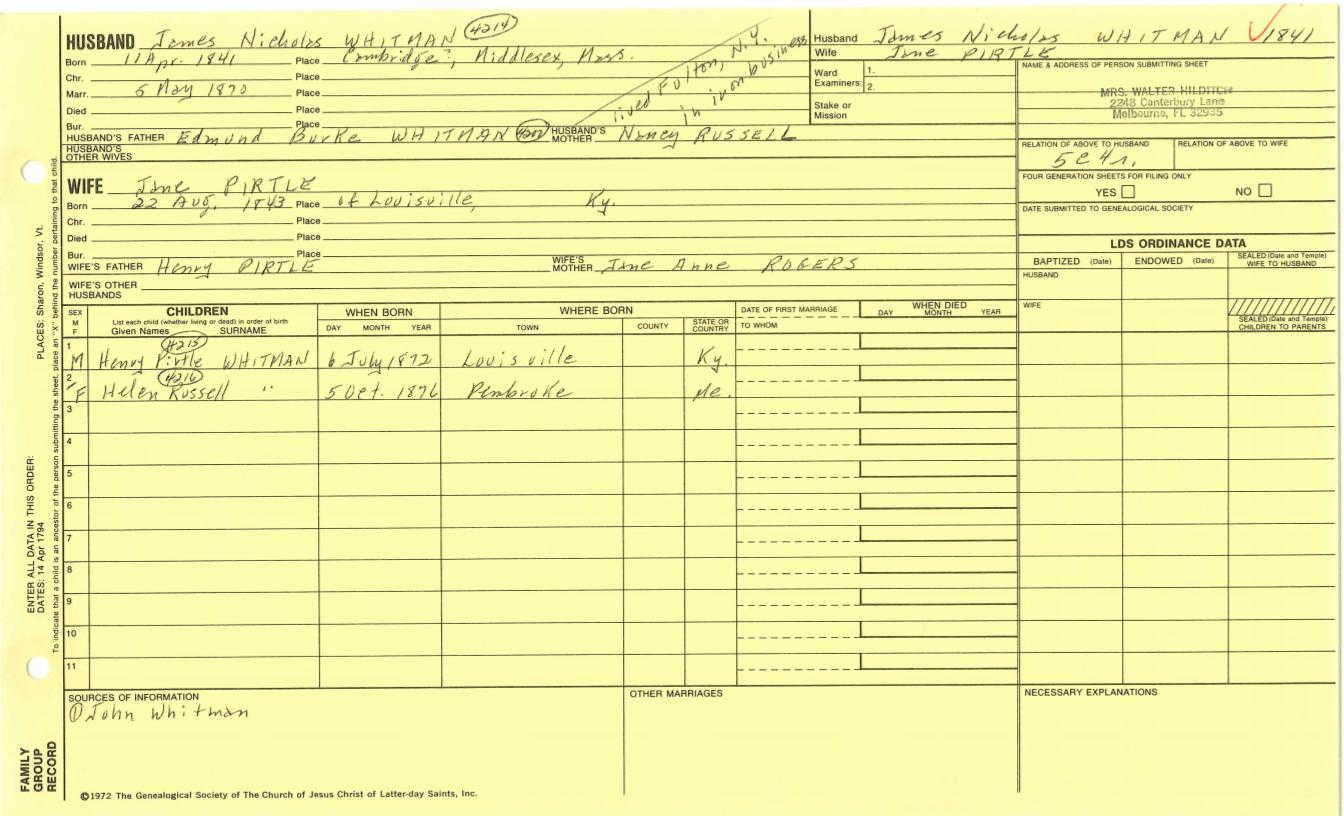 HUSBAND James Nicholas WHITMAN 4214
Born 11 Apr. 1841 Place Cambridge, Middlesex, Mass.
Chr. Place
Marr. 5 May 1870 Place
Died Place
Bur. Place
lived Fulton, N.Y.
in iron business
HUSBAND'S FATHER Edmund Burke WHITMAN HUSBAND'S MOTHER Nancy RUSSELL
HUSBAND'S OTHER WIVES
Husband James Nicholas WHITMAN 1841
Wife Jane PIRTLE
Ward Examiners: 1.
2.
Stake or Mission
NAME & ADDRESS OF PERSON SUBMITTING SHEET
MRS. WALTER HILDITCH
2248 Canterbury Lane
Melbourne, FL 32935
RELATION OF ABOVE TO HUSBAND RELATION OF ABOVE TO WIFE
5c4r.
FOUR GENERATION SHEETS FOR FILING ONLY
YES NO
DATE SUBMITTED TO GENEALOGICAL SOCIETY
WIFE Jane PIRTLE
Born 22 Aug. 1843 Place of Louisville, Ky.
Chr. Place
Died Place
Bur. Place
WIFE'S FATHER Henry PIRTLE WIFE'S MOTHER Jane Anne ROGERS
WIFE'S OTHER HUSBANDS
LDS ORDINANCE DATA
BAPTIZED (Date) ENDOWED (Date) SEALED (Date and Temple) WIFE TO HUSBAND
HUSBAND
WIFE
SEALED (Date and Temple) CHILDREN TO PARENTS
SEX M F CHILDREN WHEN BORN WHERE BORN DATE OF FIRST MARRIAGE WHEN DIED
List each child (whether living or dead) in order of birth
Given Names SURNAME DAY MONTH YEAR TOWN COUNTY STATE OR COUNTRY TO WHOM DAY MONTH YEAR
4215
1 M Henry Pirtle WHITMAN 6 July 1872 Louisville Ky.
4216
2 F Helen Russell " 5 Oct. 1876 Pembroke Me.
3
4
5
6
7
8
9
10
11
SOURCES OF INFORMATION
① John Whitman
OTHER MARRIAGES
NECESSARY EXPLANATIONS
©1972 The Genealogical Society of The Church of Jesus Christ of Latter-day Saints, Inc.
FAMILY GROUP RECORD
ENTER ALL DATA IN THIS ORDER:
DATES: 14 Apr 1794
PLACES: Sharon, Windsor, Vt.
To indicate that a child is an ancestor of the person submitting the sheet, place an "X" behind the number pertaining to that child.